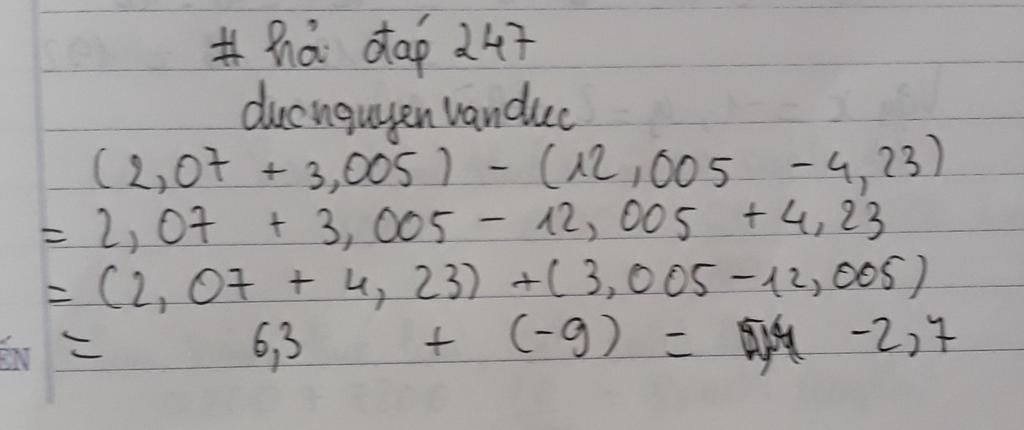 # hỏi đáp 247
ducnguyenvanduc
(2,07 + 3,005) - (12,005 - 4,23)
= 2,07 + 3,005 - 12,005 + 4,23
= (2,07 + 4,23) + (3,005 - 12,005)
ẾN = 6,3 + (-9) = -2,7